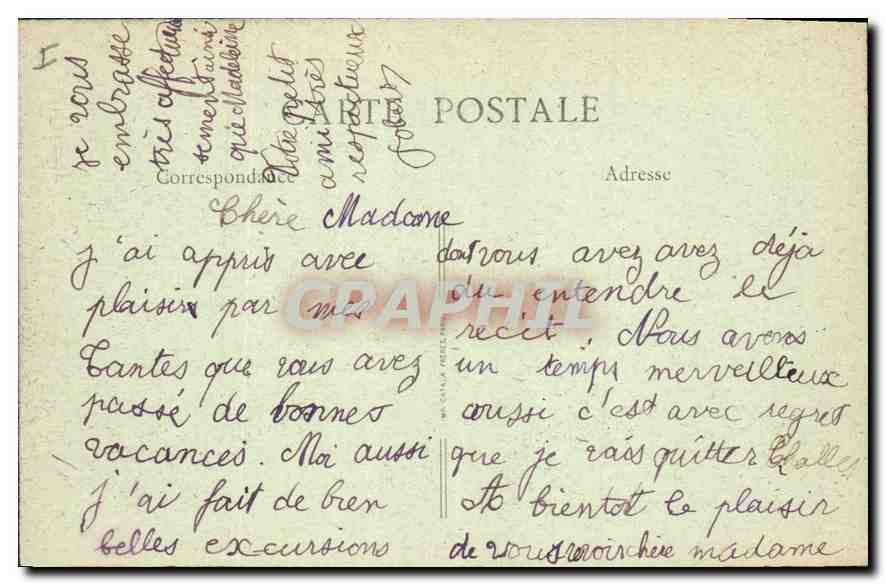 I
CARTE POSTALE
Correspondance
Adresse
Chére Madame
j'ai appris avec
plaisir par mes
Tantes que vous avez
passé de bonnes
vacances. Moi aussi
j'ai fait de bien
belles excursions
dont vous avez avez déjà
du entendre le
récit. Nous avons
un temps merveilleux
aussi c'est avec regret
que je vais quitter Challes
A bientot le plaisir
de vous revoir chère madame
je vous
embrasse
très affectueu
sement ainsi
que Madeleine
Votre petit
ami très
respectueux
CPARHIL
CATALA FRÈRES, PARIS